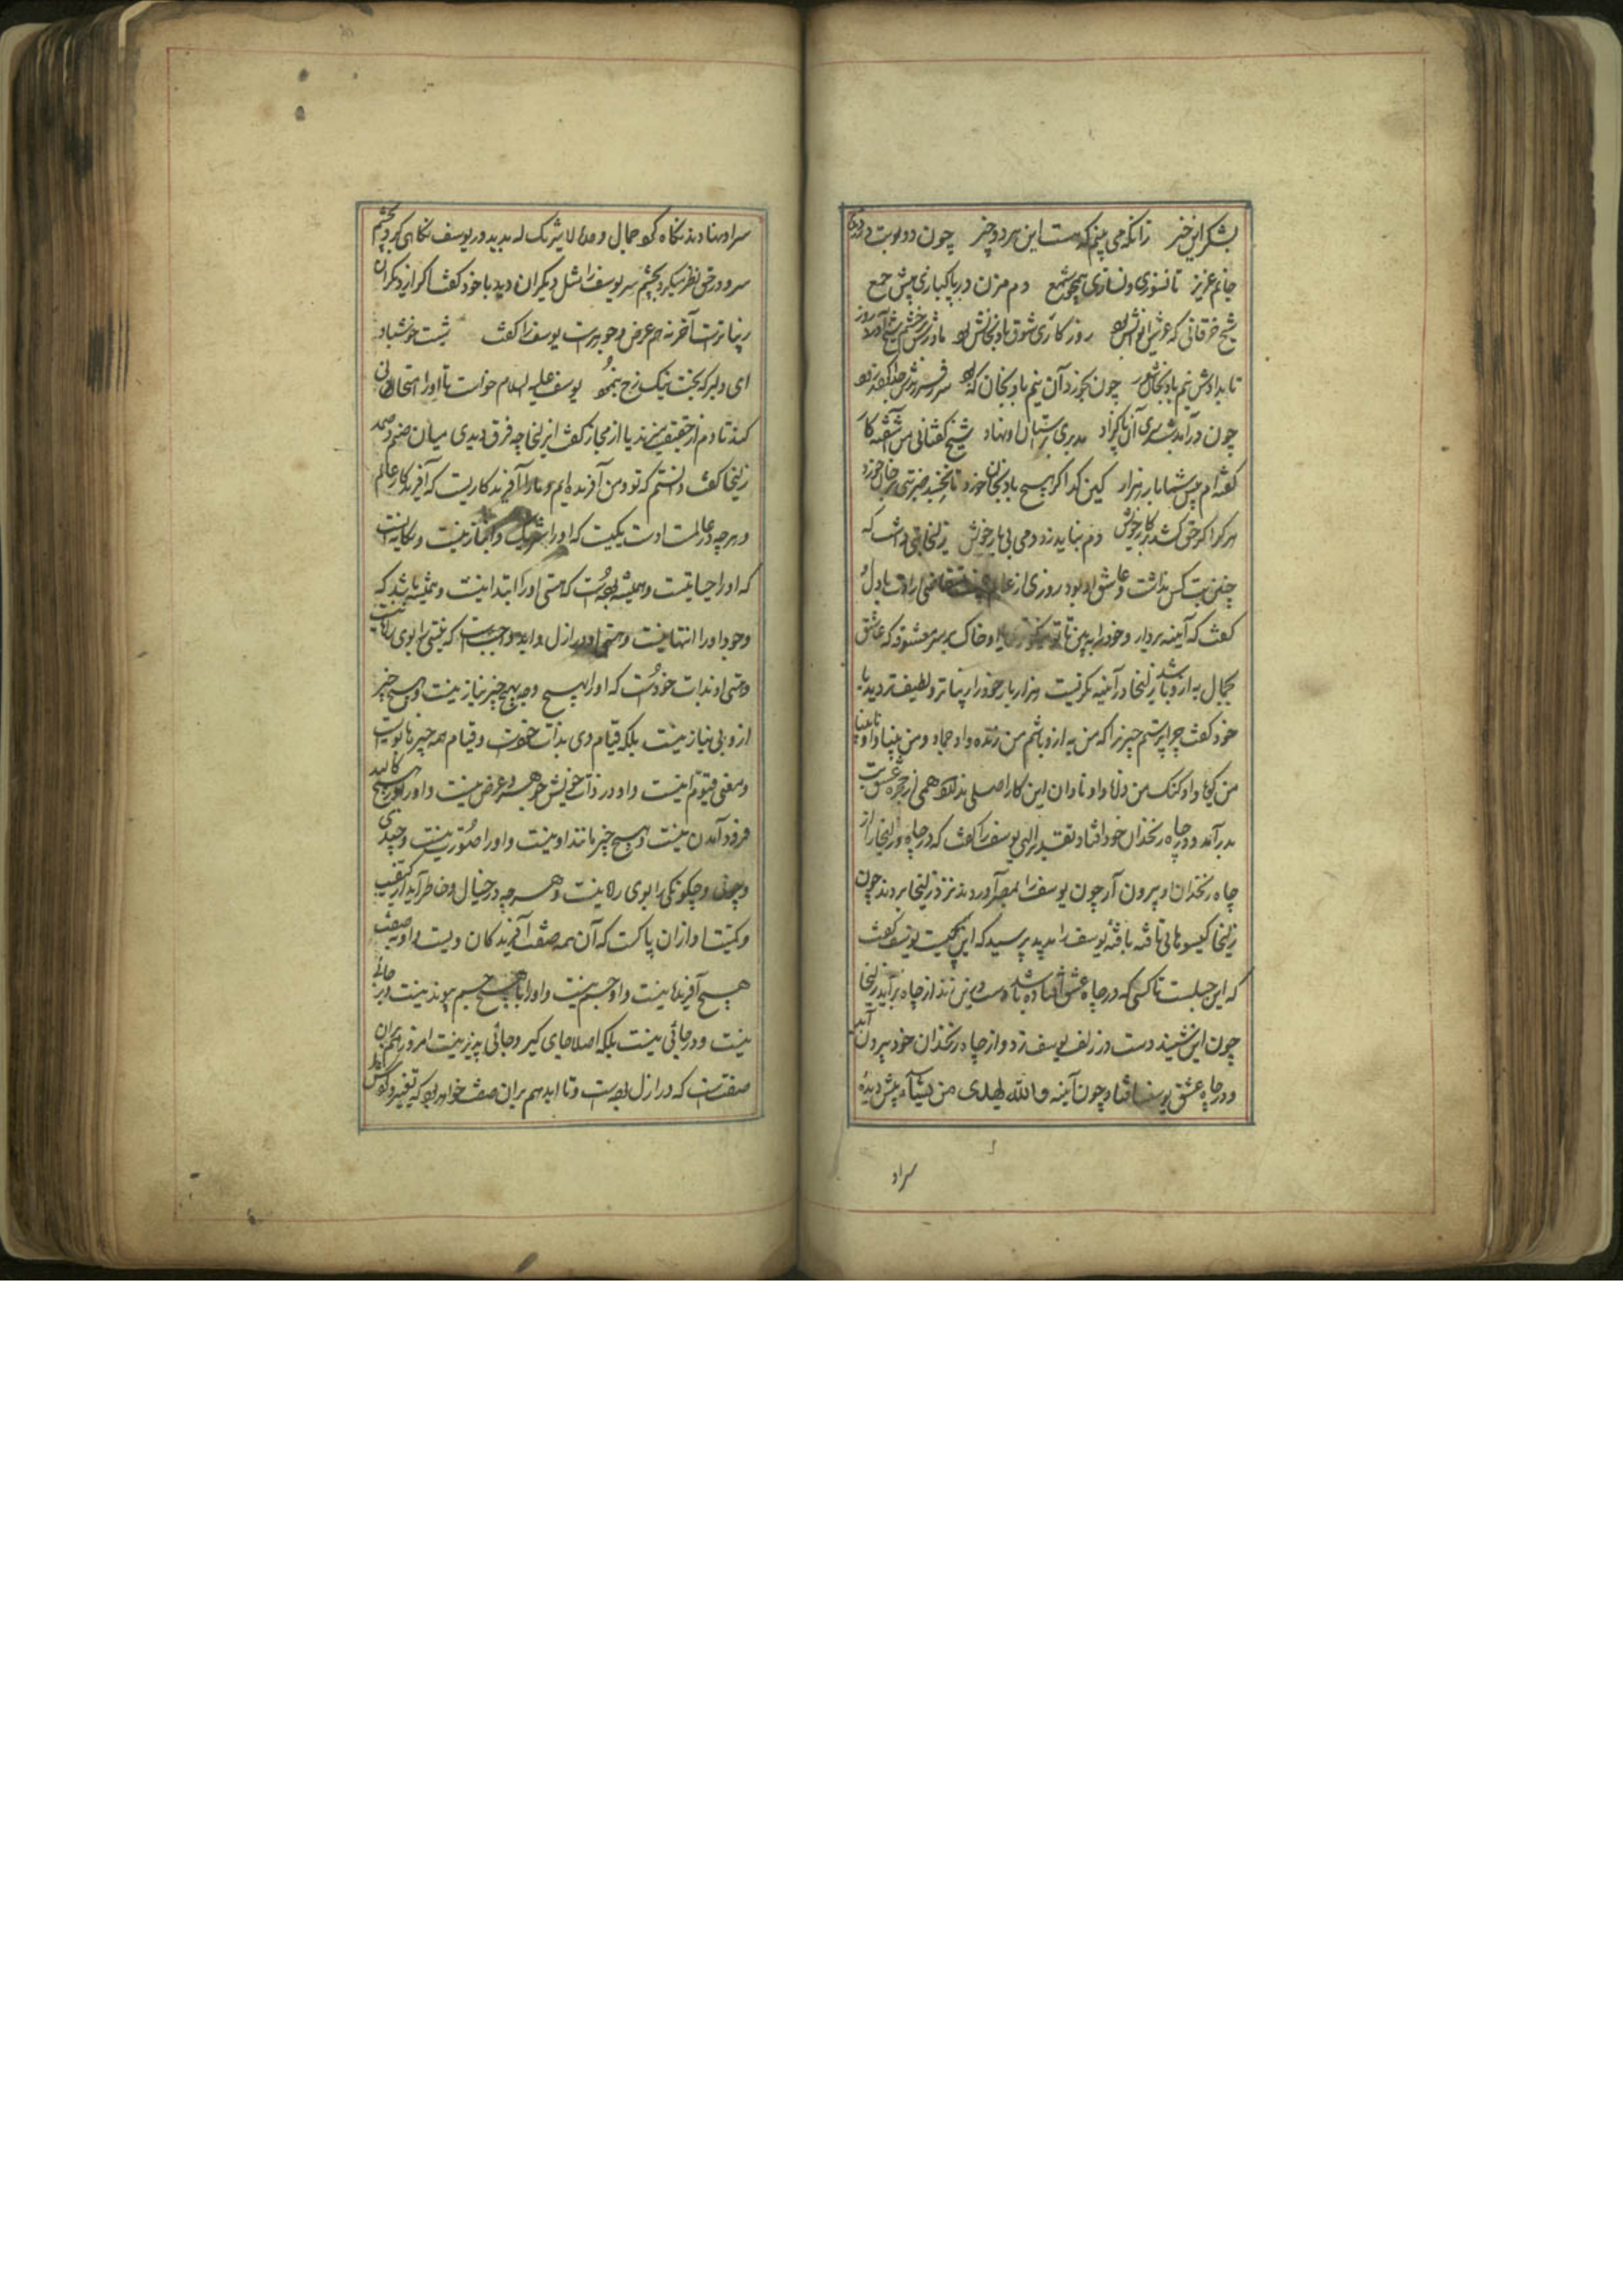 بشکر این خبر زانکه می بینم که هست این هر دو خبر چون دو نوبت
جانم عزیز تا نسوزی و نسازی همچو شمع دم مزن در پاکبازی پیش جمع
شیخ خرقانی که عرش ایوانش بود روزکاری شوق بادنجانش بود مادرش از خشم شیخ آورد شور
تا بدادش نیم بادنجان بزور چون بخورد آن نیم بادنجان که بود سر فرزندش جدا کردند زود
چون درآمد شب سر آن پاکزاد مدبری بر آستان او نهاد شیخ گفتا نی من آشفته کار
گفته ام پیش شما باری هزار کین گدا گر هیچ بادنجان خورد تا بجنبد ضربتی بر جان خورد
هر کرا اگر حق کشد در کار خویش دم نیاید زد دمی بی یار خویش زلیخا بتی داشت که
چنین بت کس نداشت و عاشق او بود روزی از
گفت که آینه بردار و خود را ببین تا تو او خاک بر سر معشوقه که عاشق
بجمال به از و باشد زلیخا در آینه نگریست هزار بار خود را زیباتر و لطیف تر دید با
خود گفت چرا پرستم چیزی را که من به از و باشم من زنده و او جماد و من بینا و او نابینا
من گویا و او گنگ من دانا و او نادان این کار اصلی ندارد همی از حجره عشق بت
بدر آمد و در چاه زنخدان خود افتاد تقدیر الهی یوسف را گفت که در چاه رو و زلیخا را از
چاه زنخدان او بیرون آر چون یوسف را بمصر آوردند نزد زلیخا بردند چون
زلیخا گیسوهای تافته بافته یوسف را بدید پرسید که این چیست یوسف گفت
که این حبلست تا کسی که در چاه عشق افتاده باشد دست درین زند از چاه برآید زلیخا
چون این شنید دست در زلف یوسف زد و از چاه زنخدان خود بیرون آمد
و در چاه عشق یوسف افتاد چون آینه والله یهدی من یشآء پیش دیده
سراو
سر او نهادند نگاه کرد جمال وحده لا شریک له بدید در یوسف نگاهی کرد بچشم
سر و در حق نظر میکرد بچشم سر یوسف را مثل دیگران دید با خود گفت اگر از دیگران
زیباترست آخر نه هم عرض و جوهرست یوسف را گفت شبت خوش باد
ای دلبر که بخت نیک رخ بنمود یوسف علیه السلام خواست تا او را امتحانی
کند تا دم از حقیقت میزند یا از مجاز گفت ای زلیخا چه فرق دیدی میان صنم و صمد
زلیخا گفت دانستم که تو و من آفریده ایم و ما را آفریدگاریست که آفریدگار عالم
و هر چه در عالمست اوست یکیست که او را شریک و انباز نیست و یگانه ایست
که او را همتا نیست و همیشه بوده است که هستی او را ابتدا نیست و همیشه باشد که
وجود او را انتها نیست و هستی او در ازل و ابد واجبست که نیستی را بوی راه نیست
و هستی او بذات خودست که او را بهیچ چیز نیاز نیست و هیچ چیز
از وی بی نیاز نیست بلکه قیام وی بذات خودست و قیام همه چیزها بویست
و معنی قیوم اینست و او در ذات خویش جوهر و عرض نیست و او را در هیچ کالبد
فرود آمدن نیست و هیچ چیز مانند او نیست و او را صورت نیست و چندی
و چونی و چگونگی را بوی راه نیست و هر چه در خیال و خاطر آید از کیفیت
و کمیت او از آن پاکست که آن همه صفت آفریدگان ویست و او بصفت
هیچ آفریده نیست و او جسم نیست و او را با هیچ جسم پیوند نیست و بر جائی
نیست و در جائی نیست بلکه اصلا جای گیر و جائی پذیر نیست امروز هم بران
صفتست که در ازل بوده است و تا ابد هم بران صفت خواهد بود که تغییر و